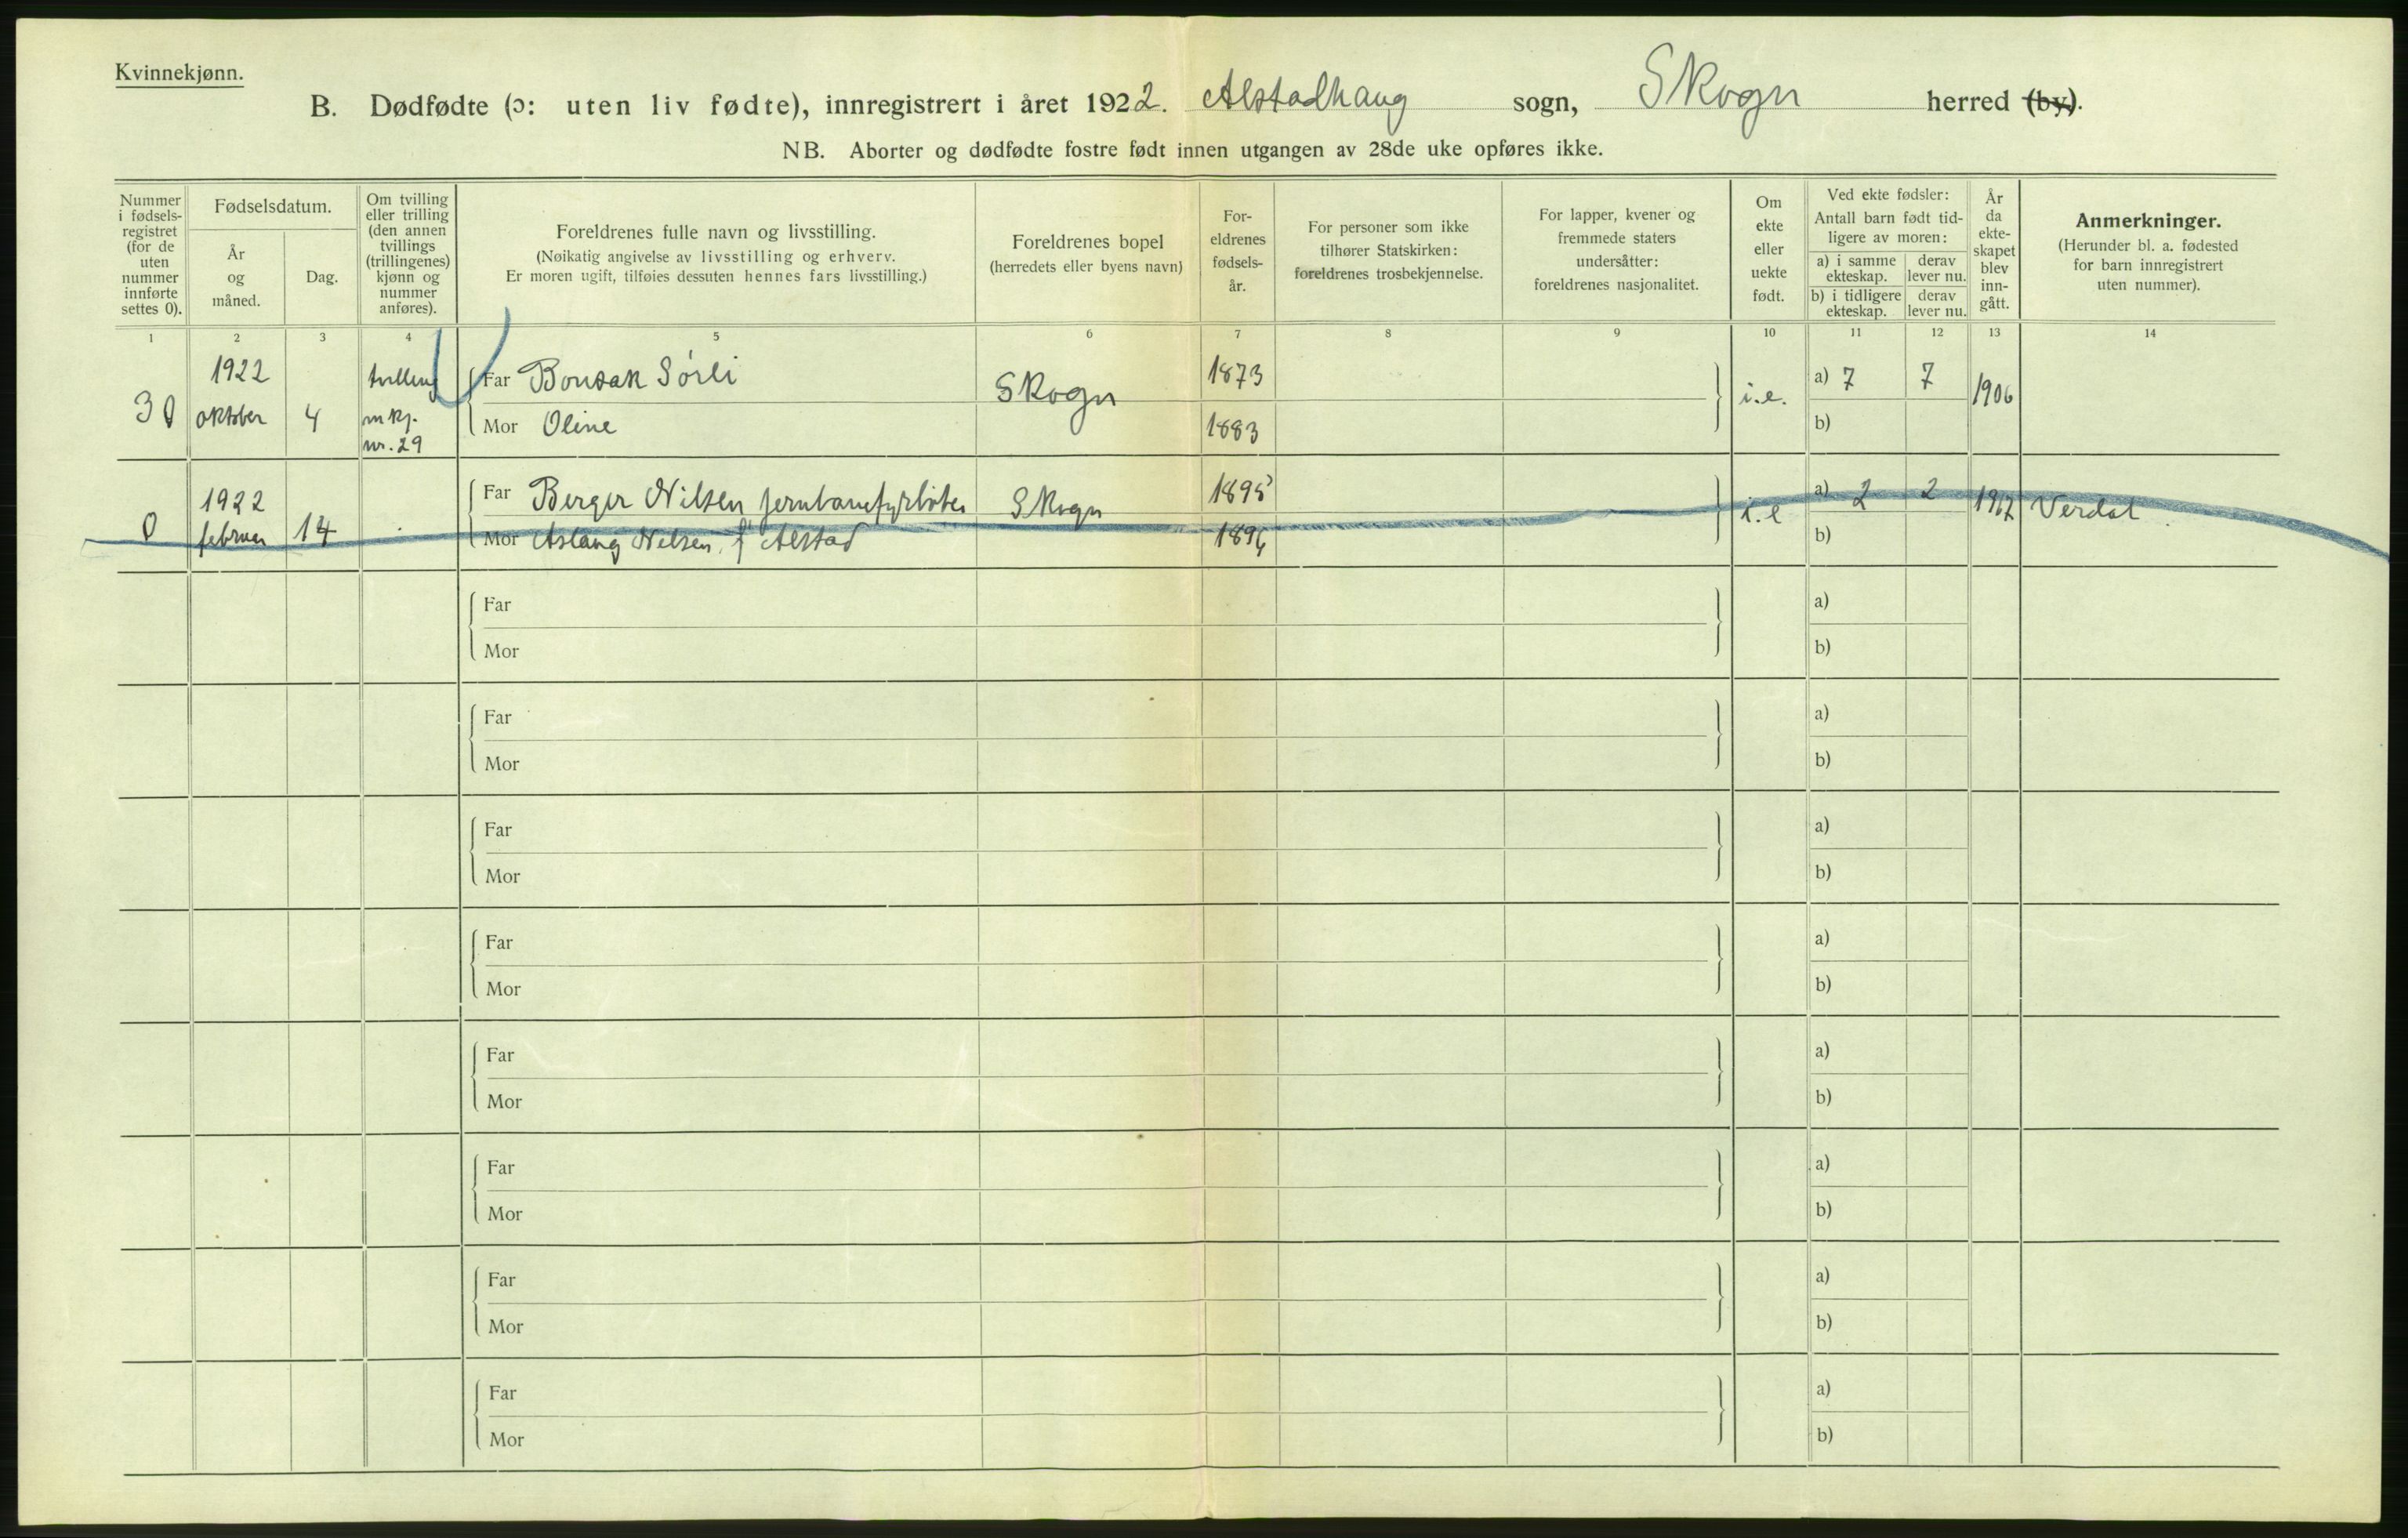 Kvinnekjønn.
B. Dødfødte (ɔ: uten liv fødte), innregistrert i året 1922. Alstadhaug sogn, Skogn herred (by).
NB. Aborter og dødfødte fostre født innen utgangen av 28de uke opføres ikke.
Nummer i fødsels- registret (for de uten nummer innførte settes 0).
Fødselsdatum.
År og måned.
Dag.
Om tvilling eller trilling (den annen tvillings (trillingenes) kjønn og nummer anføres).
Foreldrenes fulle navn og livsstilling.
(Nøikatig angivelse av livsstilling og erhverv.
Er moren ugift, tilføies dessuten hennes fars livsstilling.)
Foreldrenes bopel
(herredets eller byens navn)
For- eldrenes fødsels- år.
For personer som ikke tilhører Statskirken: foreldrenes trosbekjennelse.
For lapper, kvener og fremmede staters undersåtter: foreldrenes nasjonalitet.
Om ekte eller uekte født.
Ved ekte fødsler:
Antall barn født tid- ligere av moren:
a) i samme ekteskap.
derav lever nu.
b) i tidligere ekteskap.
derav lever nu.
År da ekte- skapet blev inn- gått.
Anmerkninger.
(Herunder bl. a. fødested for barn innregistrert uten nummer).
1 2 3 4 5 6 7 8 9 10 11 12 13 14
30 1922 oktober 4 tvilling mkj. nr. 29
Far Bonsak Sörli Skogn 1873 i.e. a) 7 7 1906
Mor Oline 1883 b)
0 1922 februar 14
Far Berger Nilsen jernbanefyrböter Skogn 1895 i.e a) 2 2 1917 Verdal
Mor Aslaug Nilsen, f Alstad 1894 b)
Far a)
Mor b)
Far a)
Mor b)
Far a)
Mor b)
Far a)
Mor b)
Far a)
Mor b)
Far a)
Mor b)
Far a)
Mor b)
Far a)
Mor b)